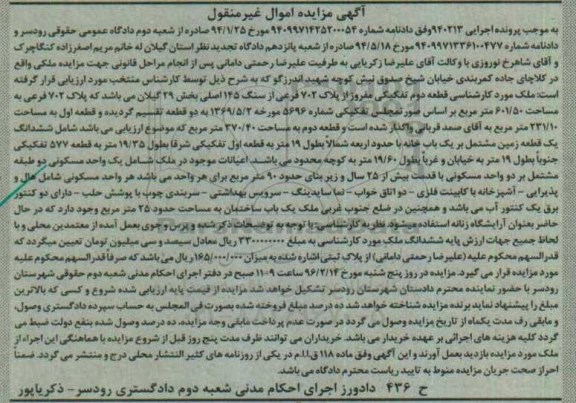 آگهی مزایده اموال غیرمنقول
به موجب پرونده اجرایی ۹۴۰۲۱۳وفق دادنامه شماره ۹۴۰۹۹۷۱۴۲۵۲۰۰۰۵۴ مورخ ۹۴/۱/۲۵ صادره از شعبه دوم دادگاه عمومی حقوقی رودسر و
دادنامه شماره ۹۴۰۹۹۷۱۳۳۶۱۰۰۴۷۷ مورخ ۹۴/۵/۱۸ صادره از شعبه پانزدهم دادگاه تجدید نظر استان گیلان له خانم مریم اصغرزاده کنگاچرک
و آقای شاهرخ نوروزی با وکالت آقای علیرضا زکریایی به طرفیت علیرضا رحمتی دامانی پس از انجام مراحل قانونی جهت مزایده ملکی واقع
در کلاچای جاده کمربندی خیابان شیخ صدوق نبش کوچه شهید اندرزگو که به شرح ذیل توسط کارشناس منتخب مورد ارزیابی قرار گرفته
است: ملک مورد کارشناسی قطعه دوم تفکیکی مفروز از پلاک ۷۰۲ فرعی از سنگ ۱۴۵ اصلی بخش ۲۹ گیلان می باشد که پلاک ۷۰۲ فرعی به
مساحت ۶۰۱/۵۰ متر مربع بر اساس صورتمجلس تفکیکی شماره ۵۶۹۶ مورخه ۱۳۶۹/۵/۲ به دو قطعه تقسیم گردیده و قطعه اول به مساحت
۲۳۱/۱۰ متر مربع به آقای صمد قربانی واگذار شده است و قطعه دوم به مساحت ۳۷۰/۴۰ متر مربع که موضوع ارزیابی می باشد شامل ششدانگ
یک قطعه زمین مشتمل بر یک باب خانه با حدود اربعه شمالاً بطول ۱۹ متر به قطعه اول تفکیکی شرقاً بطول ۱۹/۳۵ متر به قطعه ۵۷۷ تفکیکی
جنوباً بطول ۱۹ متر به خیابان و غرباً بطول ۱۹/۶۰ متر به کوچه محدود می باشد. اعیانات موجود در ملک شامل یک واحد مسکونی دو طبقه
مشتمل بر دو واحد مسکونی با قدمت بیش از ۲۵ سال و زیر بنای حدود ۹۰ متر مربع برای هر واحد می باشد هر واحد مسکونی شامل هال و
پذیرایی - آشپزخانه با کابینت فلزی - دو اتاق خواب - نما سایدینگ - سرویس بهداشتی - سربندی چوب با پوشش حلب - دارای دو کنتور
برق یک کنتور آب می باشد و همچنین در ضلع جنوب غربی ملک یک باب ساختمان به مساحت حدود ۲۵ متر مربع وجود دارد که در حال
حاضر بعنوان آرایشگاه زنانه استفاده میشود نظریه کارشناسی با توجه به توضیحات ذکر شده و پرس و جوی بعمل آمده از معتمدین محلی و با
لحاظ جمیع جهات ارزش پایه ششدانگ ملک مورد کارشناسی به مبلغ ۳۳۰۰۰۰۰۰۰۰ ریال معادل سیصد و سی میلیون تومان تعیین میگردد که
قدرالسهم محکوم علیه (علیرضا رحمتی دامانی) از پلاک ثبتی اشاره شده به میزان ریال می باشد که صرفاً قدرالسهم محکوم علیه
مورد مزایده قرار می گیرد. مزایده در روز پنج شنبه مورخ ۹۶/۲/۱۴ ساعت ۹-۱۱ صبح در دفتر اجرای احکام مدنی شعبه دوم حقوقی شهرستان
رودسر با حضور نماینده محترم دادستان شهرستان رودسر تشکیل خواهد شد. مزایده از قیمت پایه ارزیابی شده شروع و کسی که بالاترین
مبلغ را پیشنهاد نماید برنده مزایده شناخته خواهد شد. ده درصد مبلغ فروخته شده بصورت فی المجلس به حساب سپرده دادگستری وصول،
و مابقی ظرف مدت یکماه از تاریخ مزایده وصول می گردد در صورت عدم پرداخت مابقی وجه مزایده، ده درصد وصول شده بنفع دولت ضبط می
گردد کلیه هزینه های اجرائی بر عهده خریدار می باشد. خریداران می توانند ظرف مدت پنج روز قبل از شروع مزایده با هماهنگی این اجراء از
ملک مورد مزایده بازدید بعمل آورند و این آگهی وفق ماده ۱۱۸ ق.ا.ا.م در یکی از روزنامه های کثیر الانتشار محلی درج و منتشر می گردد. ضمناً
احراز صحت جریان مزایده منوط به تایید ریاست محترم دادگاه می باشد.
ح ۴۳۶ دادورز اجرای احکام مدنی شعبه دوم دادگستری رودسر- ذکریاپور